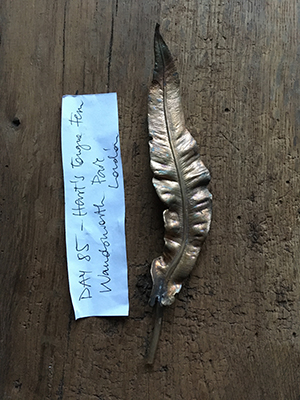 DAY 85 - Hart's Tongue fern
Wandsworth Park,
London